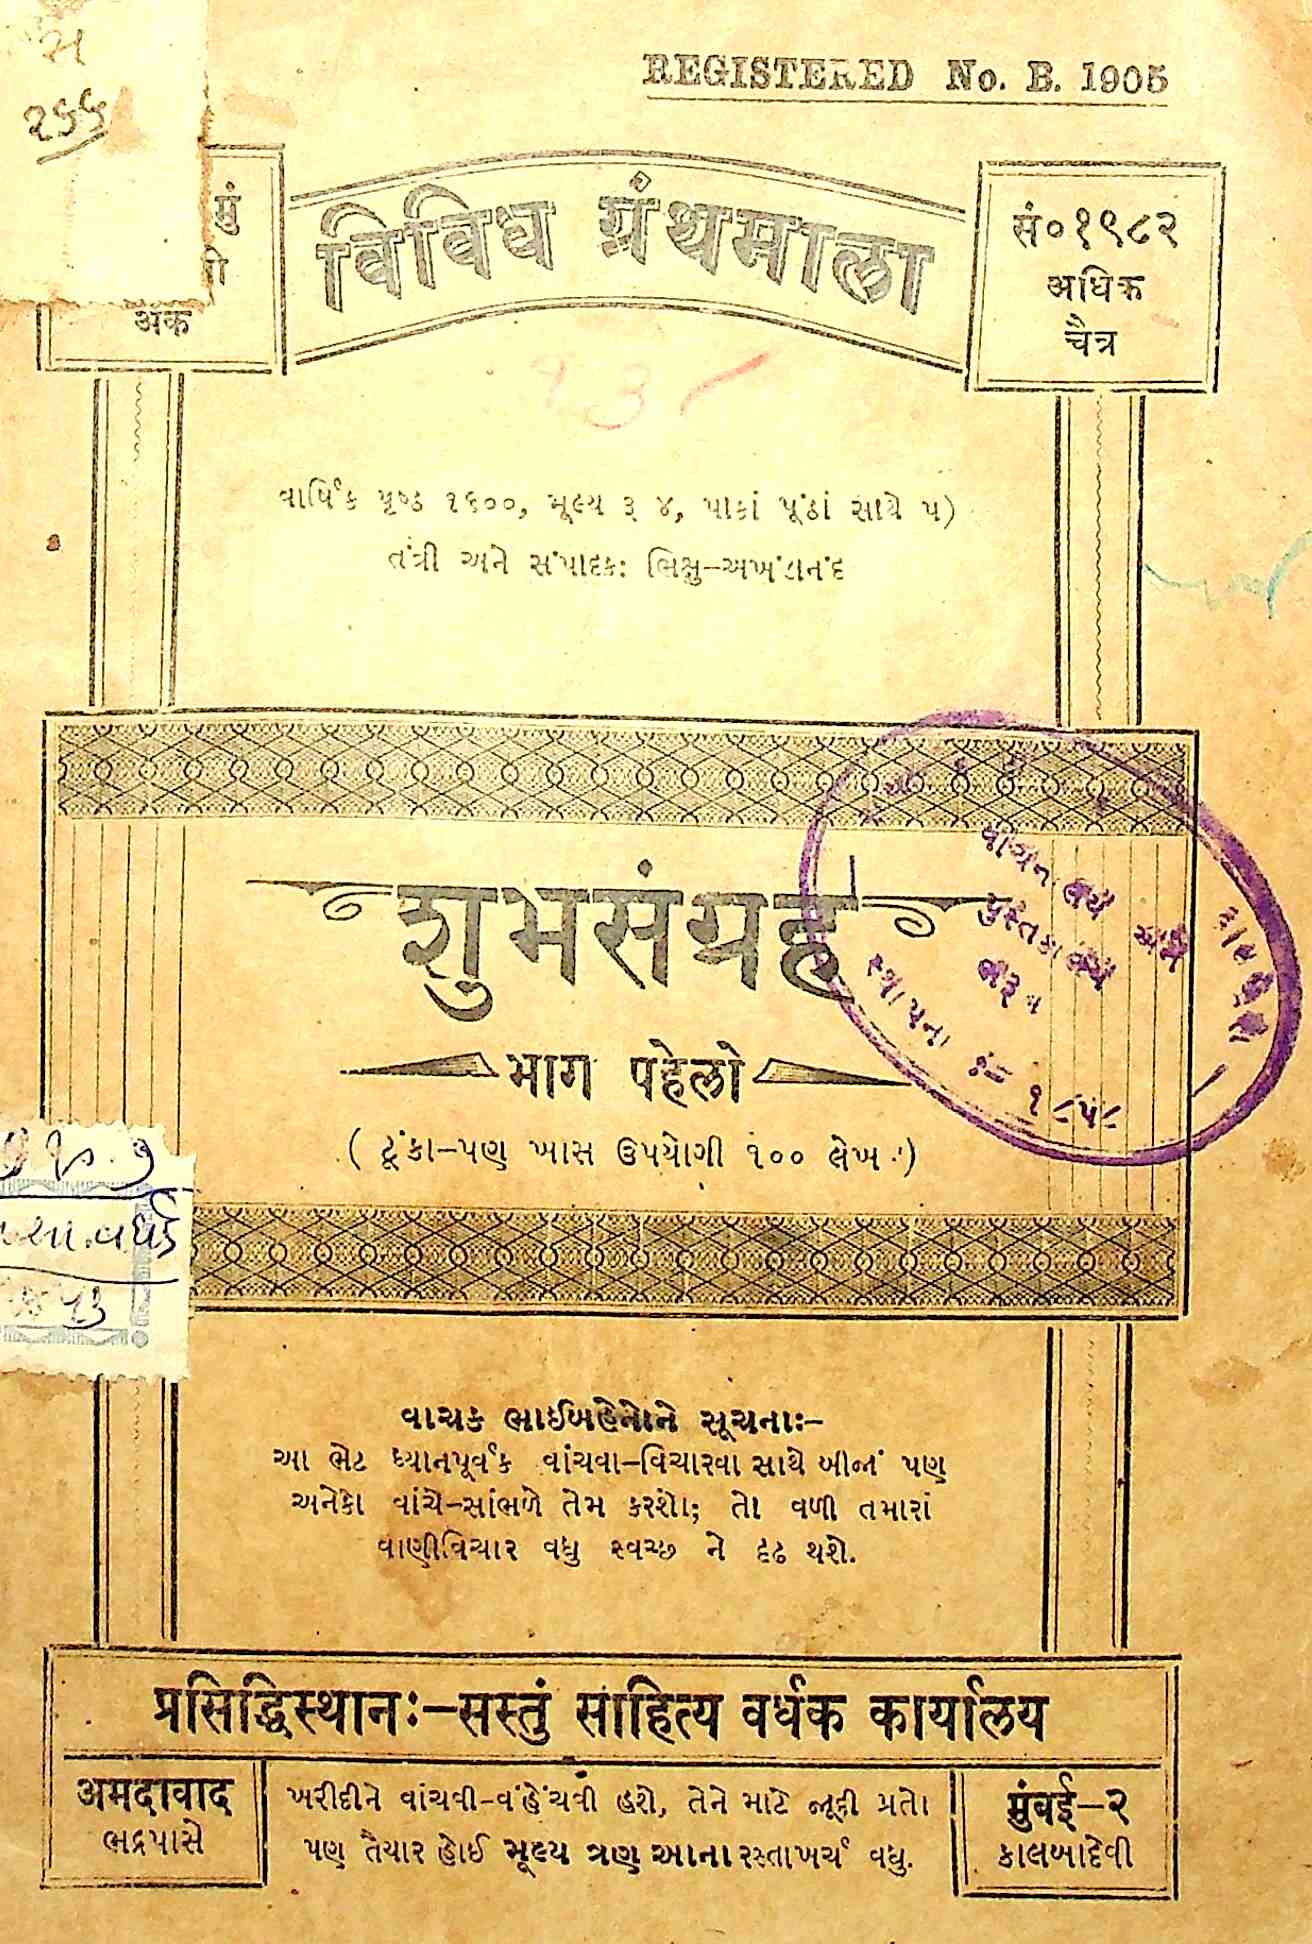 સ
૨૬૬
REGISTERED No. B. 1905
विविध ग्रंथमाला
अंक
सं०१९८२
अधिक
चैत्र
૧૩
વાર્ષિક પૃષ્ઠ ૧૬૦૦, મૂલ્ય રૂ ૪, પાકાં પૂંઠાં સાથે ૫)
તંત્રી અને સંપાદક: ભિક્ષુ-અખંડાનંદ
शुभसंग्रह
भाग पहेलो
( ટૂંકા-પણ ખાસ ઉપયોગી ૧૦૦ લેખ )
વાંચનાલય
પુસ્તકાલય
ભરૂચ
સ્થાપના
૧૮૫૮
સા.વર્ધક
વાચક ભાઈબહેનોને સૂચના:-
આ ભેટ ધ્યાનપૂર્વક વાંચવા-વિચારવા સાથે બીજાં પણ
અનેકો વાંચે-સાંભળે તેમ કરશો; તો વળી તમારાં
વાણીવિચાર વધુ સ્વચ્છ ને દૃઢ થશે.
प्रसिद्धिस्थान:-सस्तुं साहित्य वर्धक कार्यालय
अमदावाद
ભદ્રપાસે
ખરીદીને વાંચવી-વંહેંચવી હશે, તેને માટે જૂદી પ્રતો
પણ તૈયાર હોઈ મૂલ્ય ત્રણ આના રસ્તાખર્ચ વધુ.
मुंबई-२
કાલબાદેવી